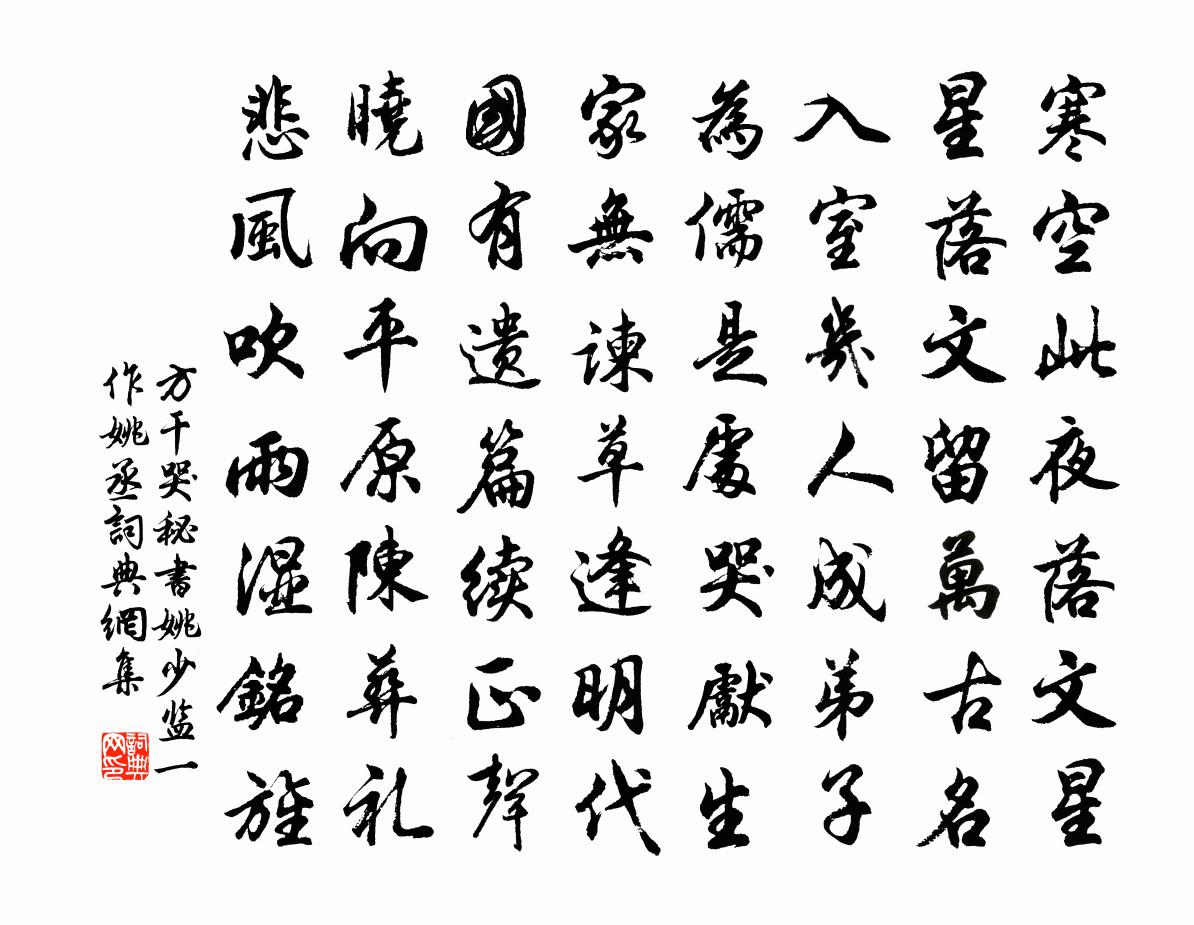 寒空此夜落文星
星落文留萬古名
入室幾人成弟子
為儒是處哭獻生
家無諫草逢明代
國有遺篇续正聲
曉向平原陳葬礼
悲風吹雨湿銘旌
方干哭秘書姚少监一
作姚丞詞典網集
詞典网印